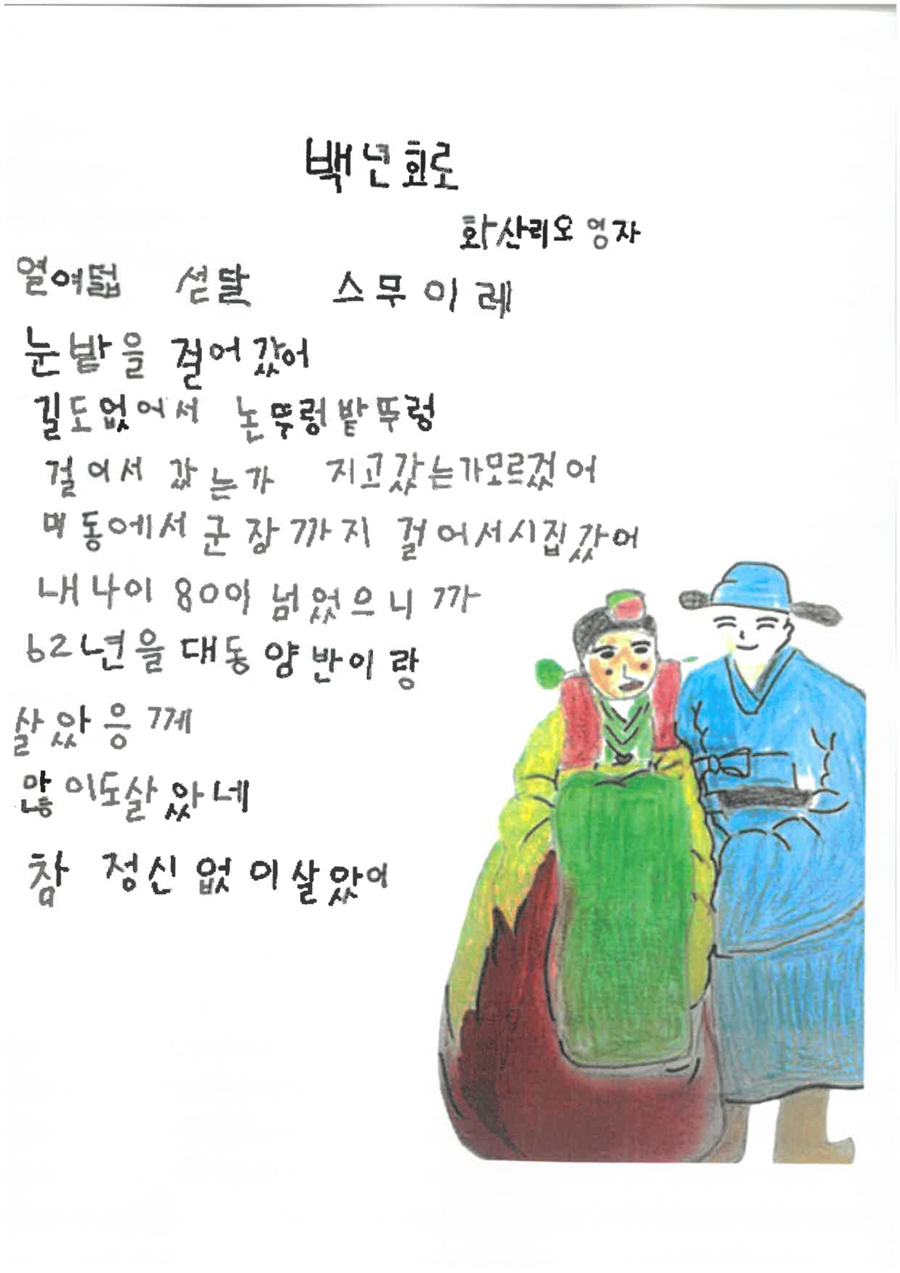 백년회로
화산리오영자
열여덟 섣달 스무이레
눈밭을 걸어갔어
길도없어서 논뚜렁밭뚜렁
걸어서 갔는가 지고갔는가모르겄어
에서군장까지 걸어서시집갔어
내나이 80이 넘었으니까
62년을대동양반이랑
살았응께
많이도살았네
참 정신없이살았어